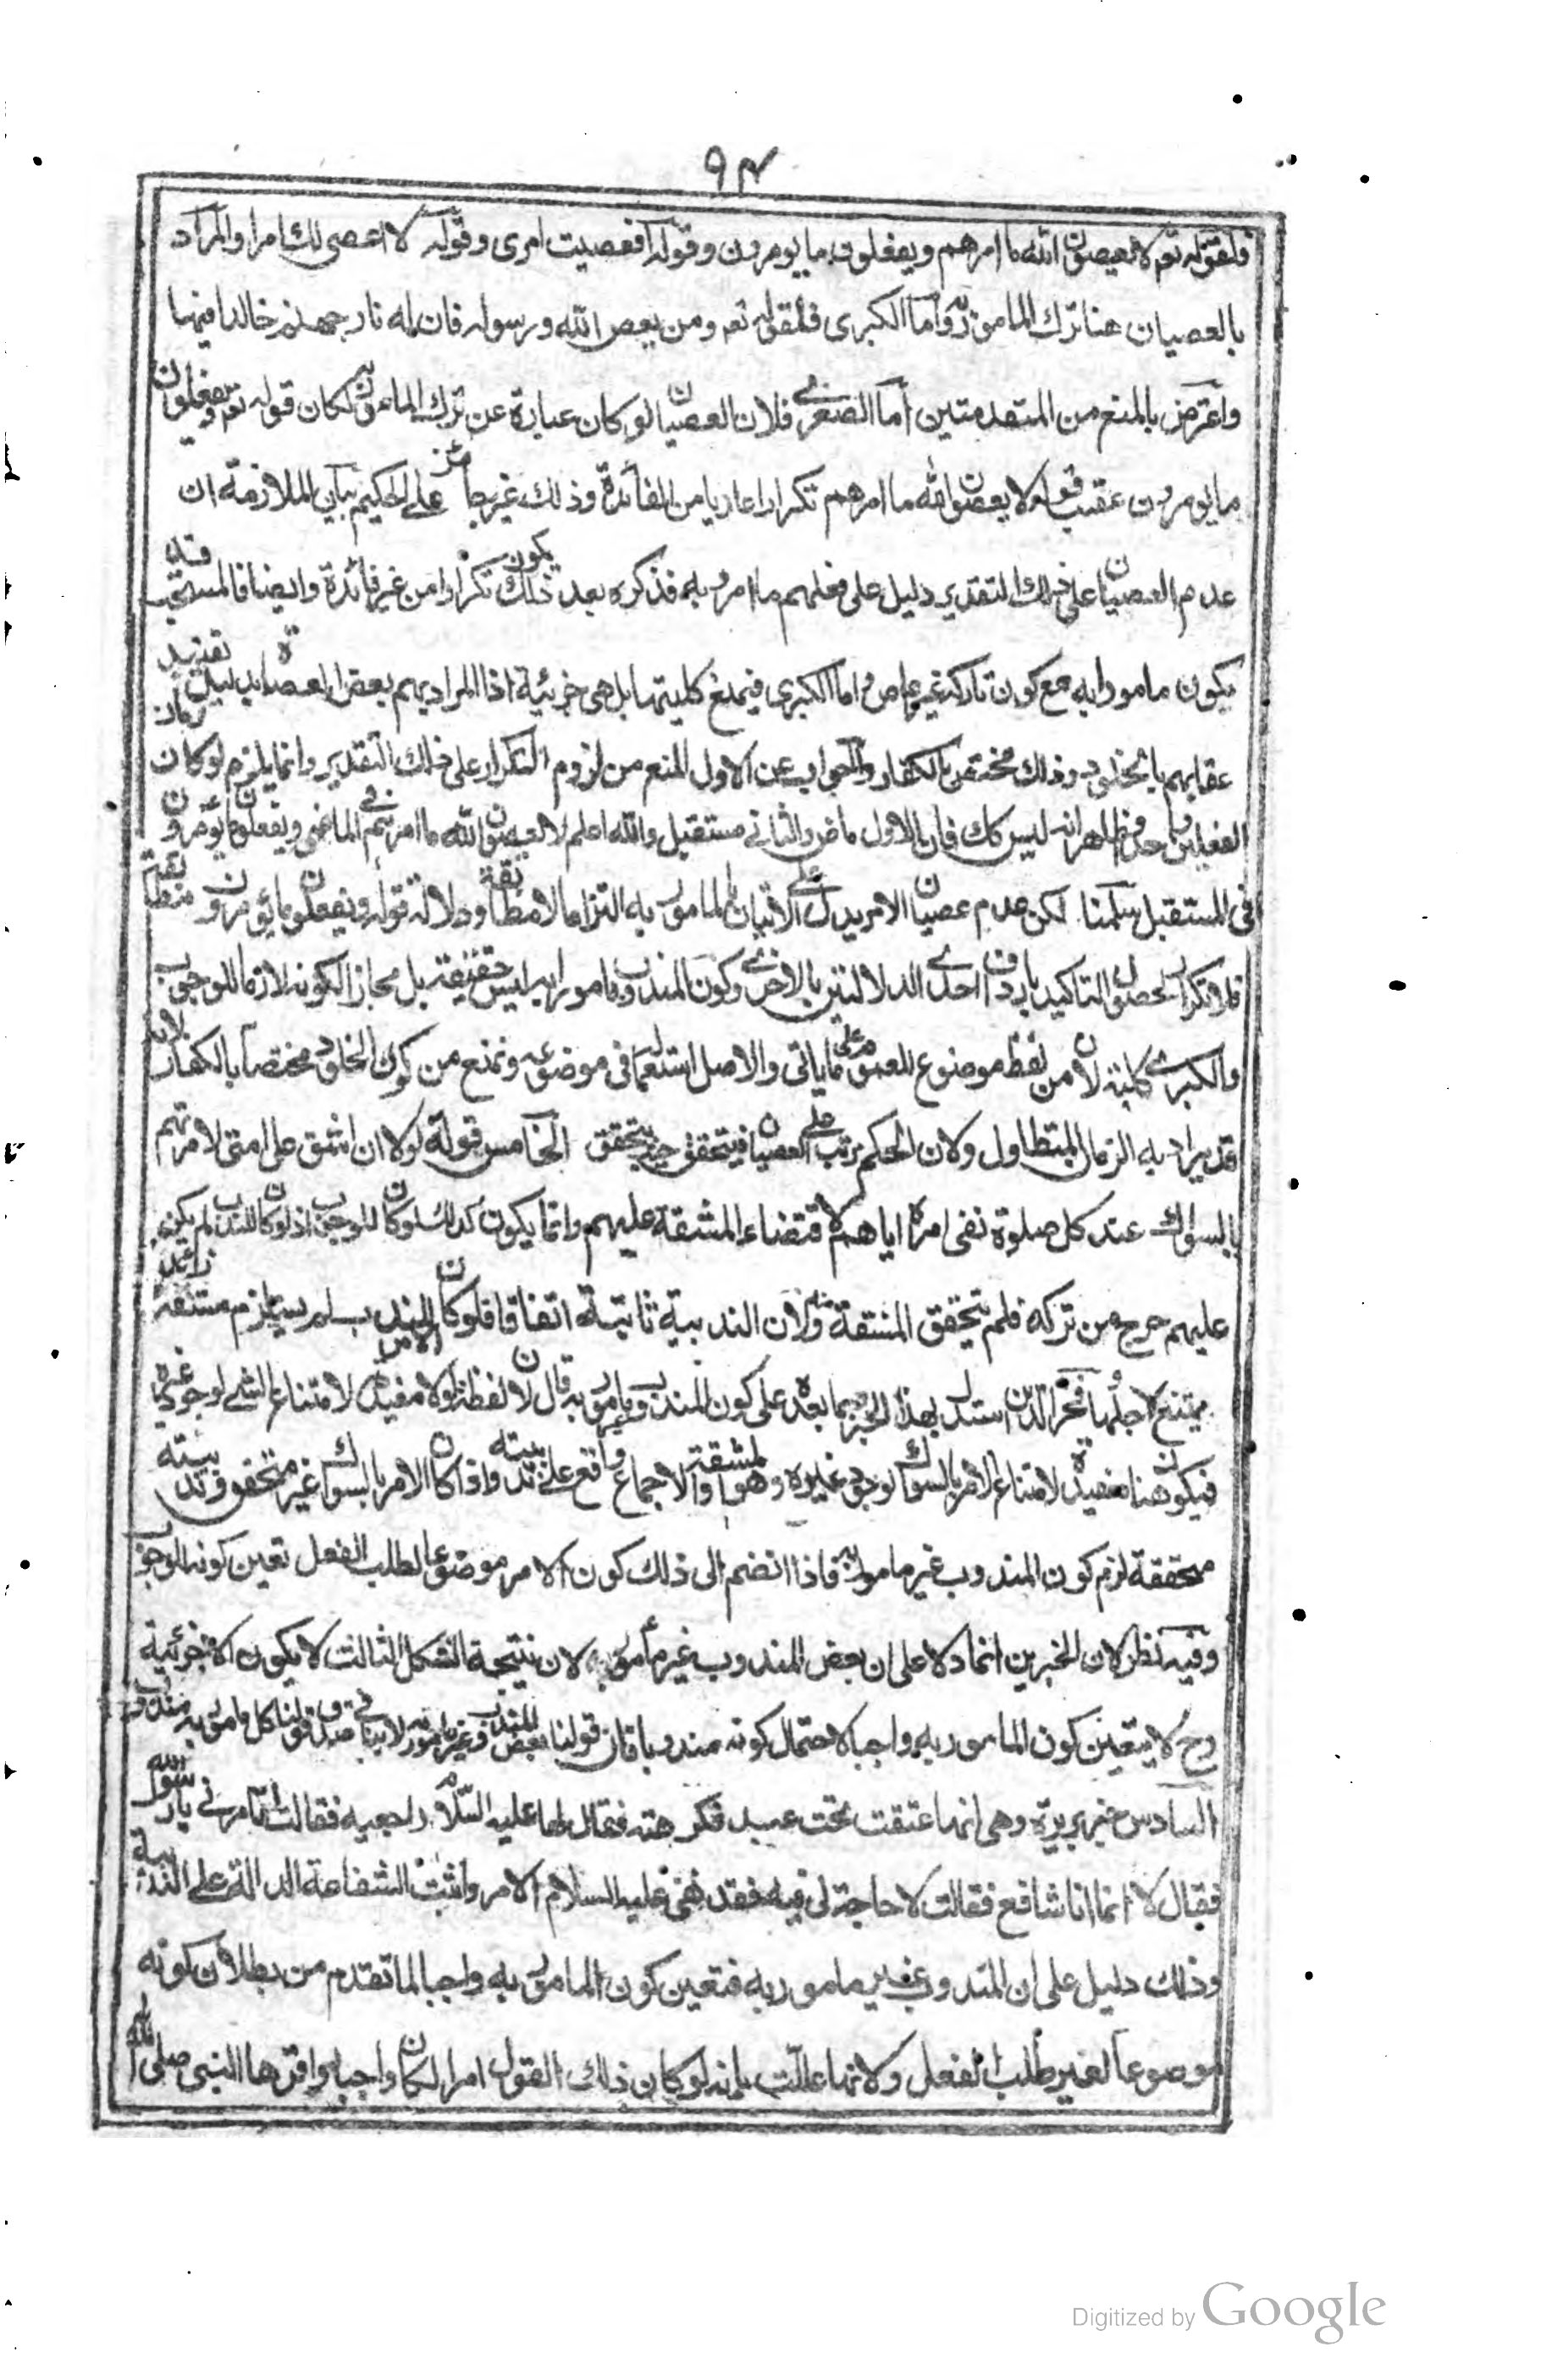 ٩٤
فلقوله تع لا يعصون الله ما امرهم ويفعلون ما يومرون وقوله افعصيت امرى وقوله لا اعصى لك امرا والمراد
بالعصيان هنا ترك المامور به واما الكبرى فلقوله تع ومن يعص الله ورسوله فان له نار جهنم خالدا فيها
واعترض بالمنع من المتقدمتين اما الصغرى فلان العصيان لو كان عبارة عن ترك المامور به لكان قوله تع ويفعلون
ما يومرون عقيب قوله لا يعصون الله ما امرهم تكرارا عاريا من الفائدة وذلك غير جائز على الحكيم بيان الملازمة ان
عدم العصيان على ذلك التقدير دليل على فعلهم ما امروا به فذكره بعد ذلك يكون تكرارا من غير فائدة وايضا فالمستحب قد
يكون مامورا به مع كون تاركه غير عاص واما الكبرى فيمنع كليتها بل هى جزئية اذا المراد بهم بعض العصاة بدليل تقييد
عقابهم بالخلود وذلك مختص بالكفار والجواب عن الاول المنع من لزوم التكرار على ذلك التقدير وانما يلزم لو كان زمان
الفعلين واحدا وظاهر انه ليس كك فان الاول ماض والثانى مستقبل والله اعلم لا يعصون الله ما امرهم فى الماضى ويفعلون ما يومرون
فى المستقبل سلمنا لكن عدم عصيان الامر يدل على الاتيان بالمامور به التزاما لا مطابقة ودلالة قوله ويفعلون ما يؤمرون مطابقة
فلا تكرار لحصول التاكيد بارداف احدى الدلالتين بالاخرى وكون المندوب مامورا به ليس حقيقة بل مجازا لكونه لازما للوجوب
والكبرى كلية لان من لفظ موضوع للعموم على ما ياتى والاصل استعماله فى موضوعه ونمنع من كون الخلود مختصا بالكفار لانه
قد يراد به الزمان المتطاول ولان الحكم مرتب على العصيان فيتحقق حيث يتحقق الخامس قوله لولا ان اشق على امتى لامرتهم
بالسواك عند كل صلوة نفى امره اياهم لاقتضاء المشقة عليهم وانما يكون كذلك لو كان للوجوب اذ لو كان للندب لم يكن
عليهم حرج من تركه فلم يتحقق المشقة منه ولان الندبية ثابتة اتفاقا فلو كان الامر للندب لم يستلزم مشقة زائدة
يمتنع لاجلها وفخر الدين استدل بهذا الخبر وبما بعده على كون المندوب غير مامور به قال لان لفظة لولا مفيدة لامتناع الشى لوجود غيره
فيكون هنا مفيدة لامتناع الامر بالسواك لوجود غيره وهو المشقة والاجماع واقع على ندبيته واذا كان الامر بالسواك غير متحقق وندبيته
محققة لزم كون المندوب غير مامور به فاذا انضم الى ذلك كون الامر موضوعا لطلب الفعل تعين كونه للوجوب
وفيه نظر لان الخبرين انما دلا على ان بعض المندوب غير مأمور به لان نتيجة الشكل الثالث لا يكون الا جزئية
وح لا يتعين كون المامور به واجبا لاحتمال كونه مندوبا فان قولنا بعض المندوب غير مامور به لا ينافى صدق قولنا كل مامور به مندوب
السادس خبر بريرة وهى انها عتقت تحت عبد فكرهته فقال لها عليه السلام راجعيه فقالت أتامرنى يا رسول الله
فقال لا انما انا شافع فقالت لا حاجة لى فيه فقد نفى عليه السلام الامر واثبت الشفاعة الدالة على الندبية
وذلك دليل على ان المندوب غير مامور به فتعين كون المامور به واجبا لما تقدم من بطلان كونه
موضوعا لغير طلب الفعل ولانها عللت بانه لو كان ذلك القول امرا لكان واجبا واقرها النبى صلى الله
Digitized by Google